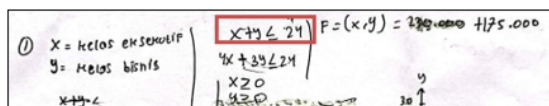 ① x = kelas eksekutif
y = kelas bisnis
x+y ≤ 24
4x + 3y ≤ 24
x ≥ 0
y ≥ 0
F = (x,y) = +175.000
y
30